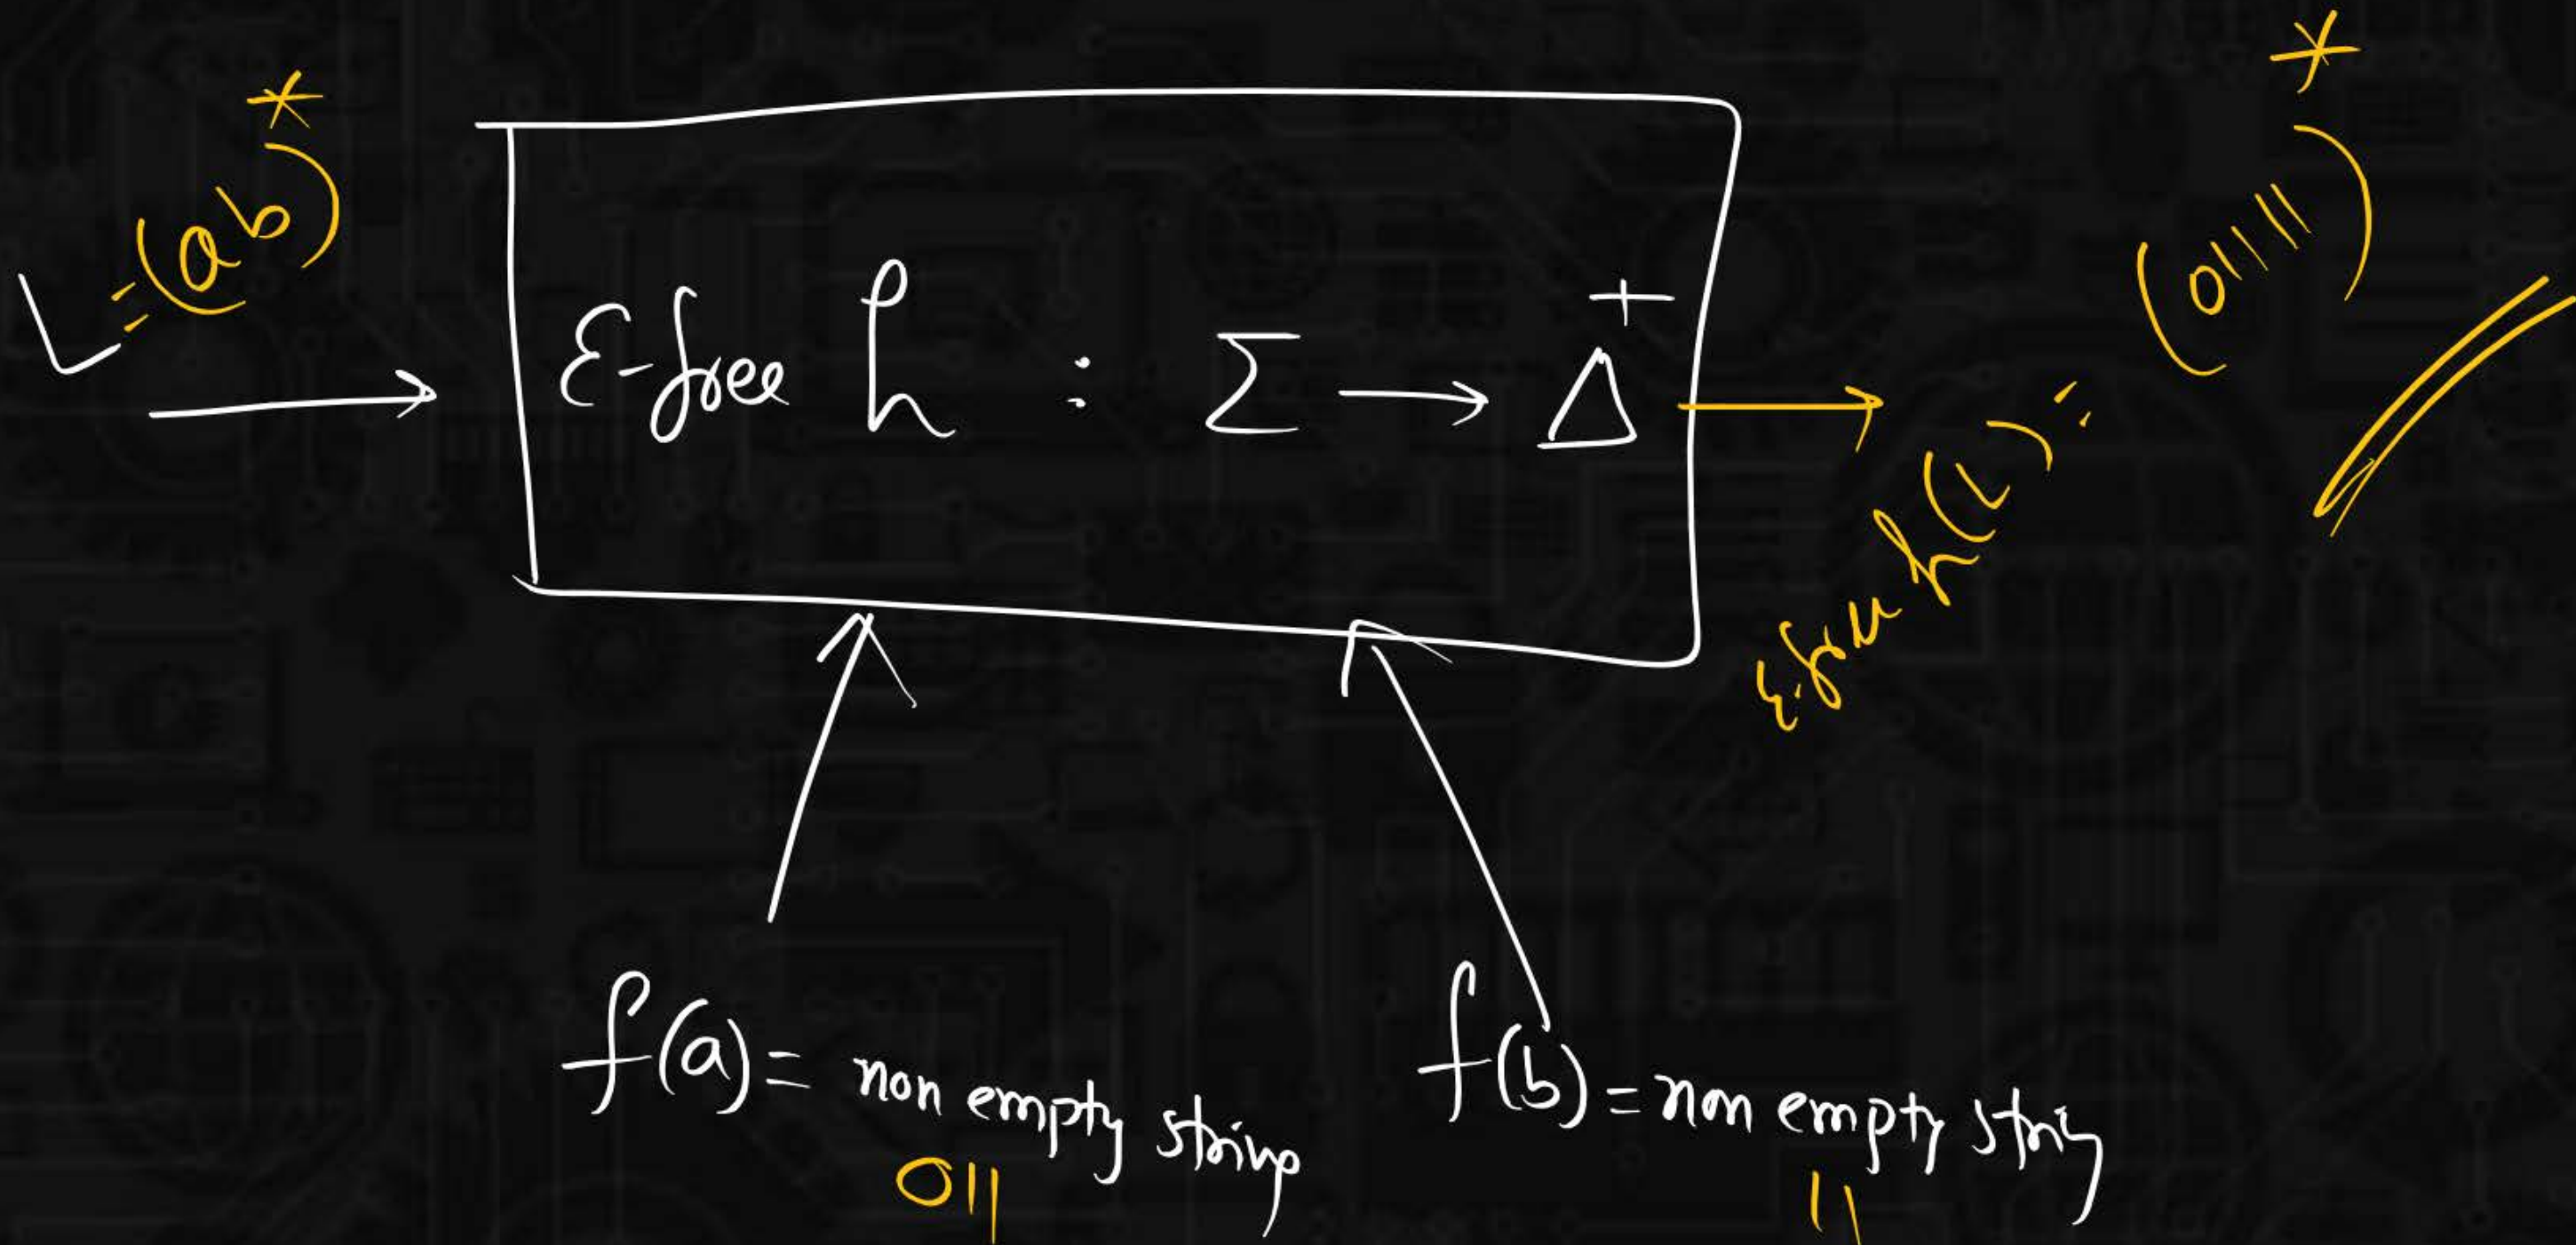 L = (ab)*
ε-free h : Σ → Δ⁺
ε-free h(L) = (01111)*
f(a) = non empty string
011
f(b) = non empty string
11